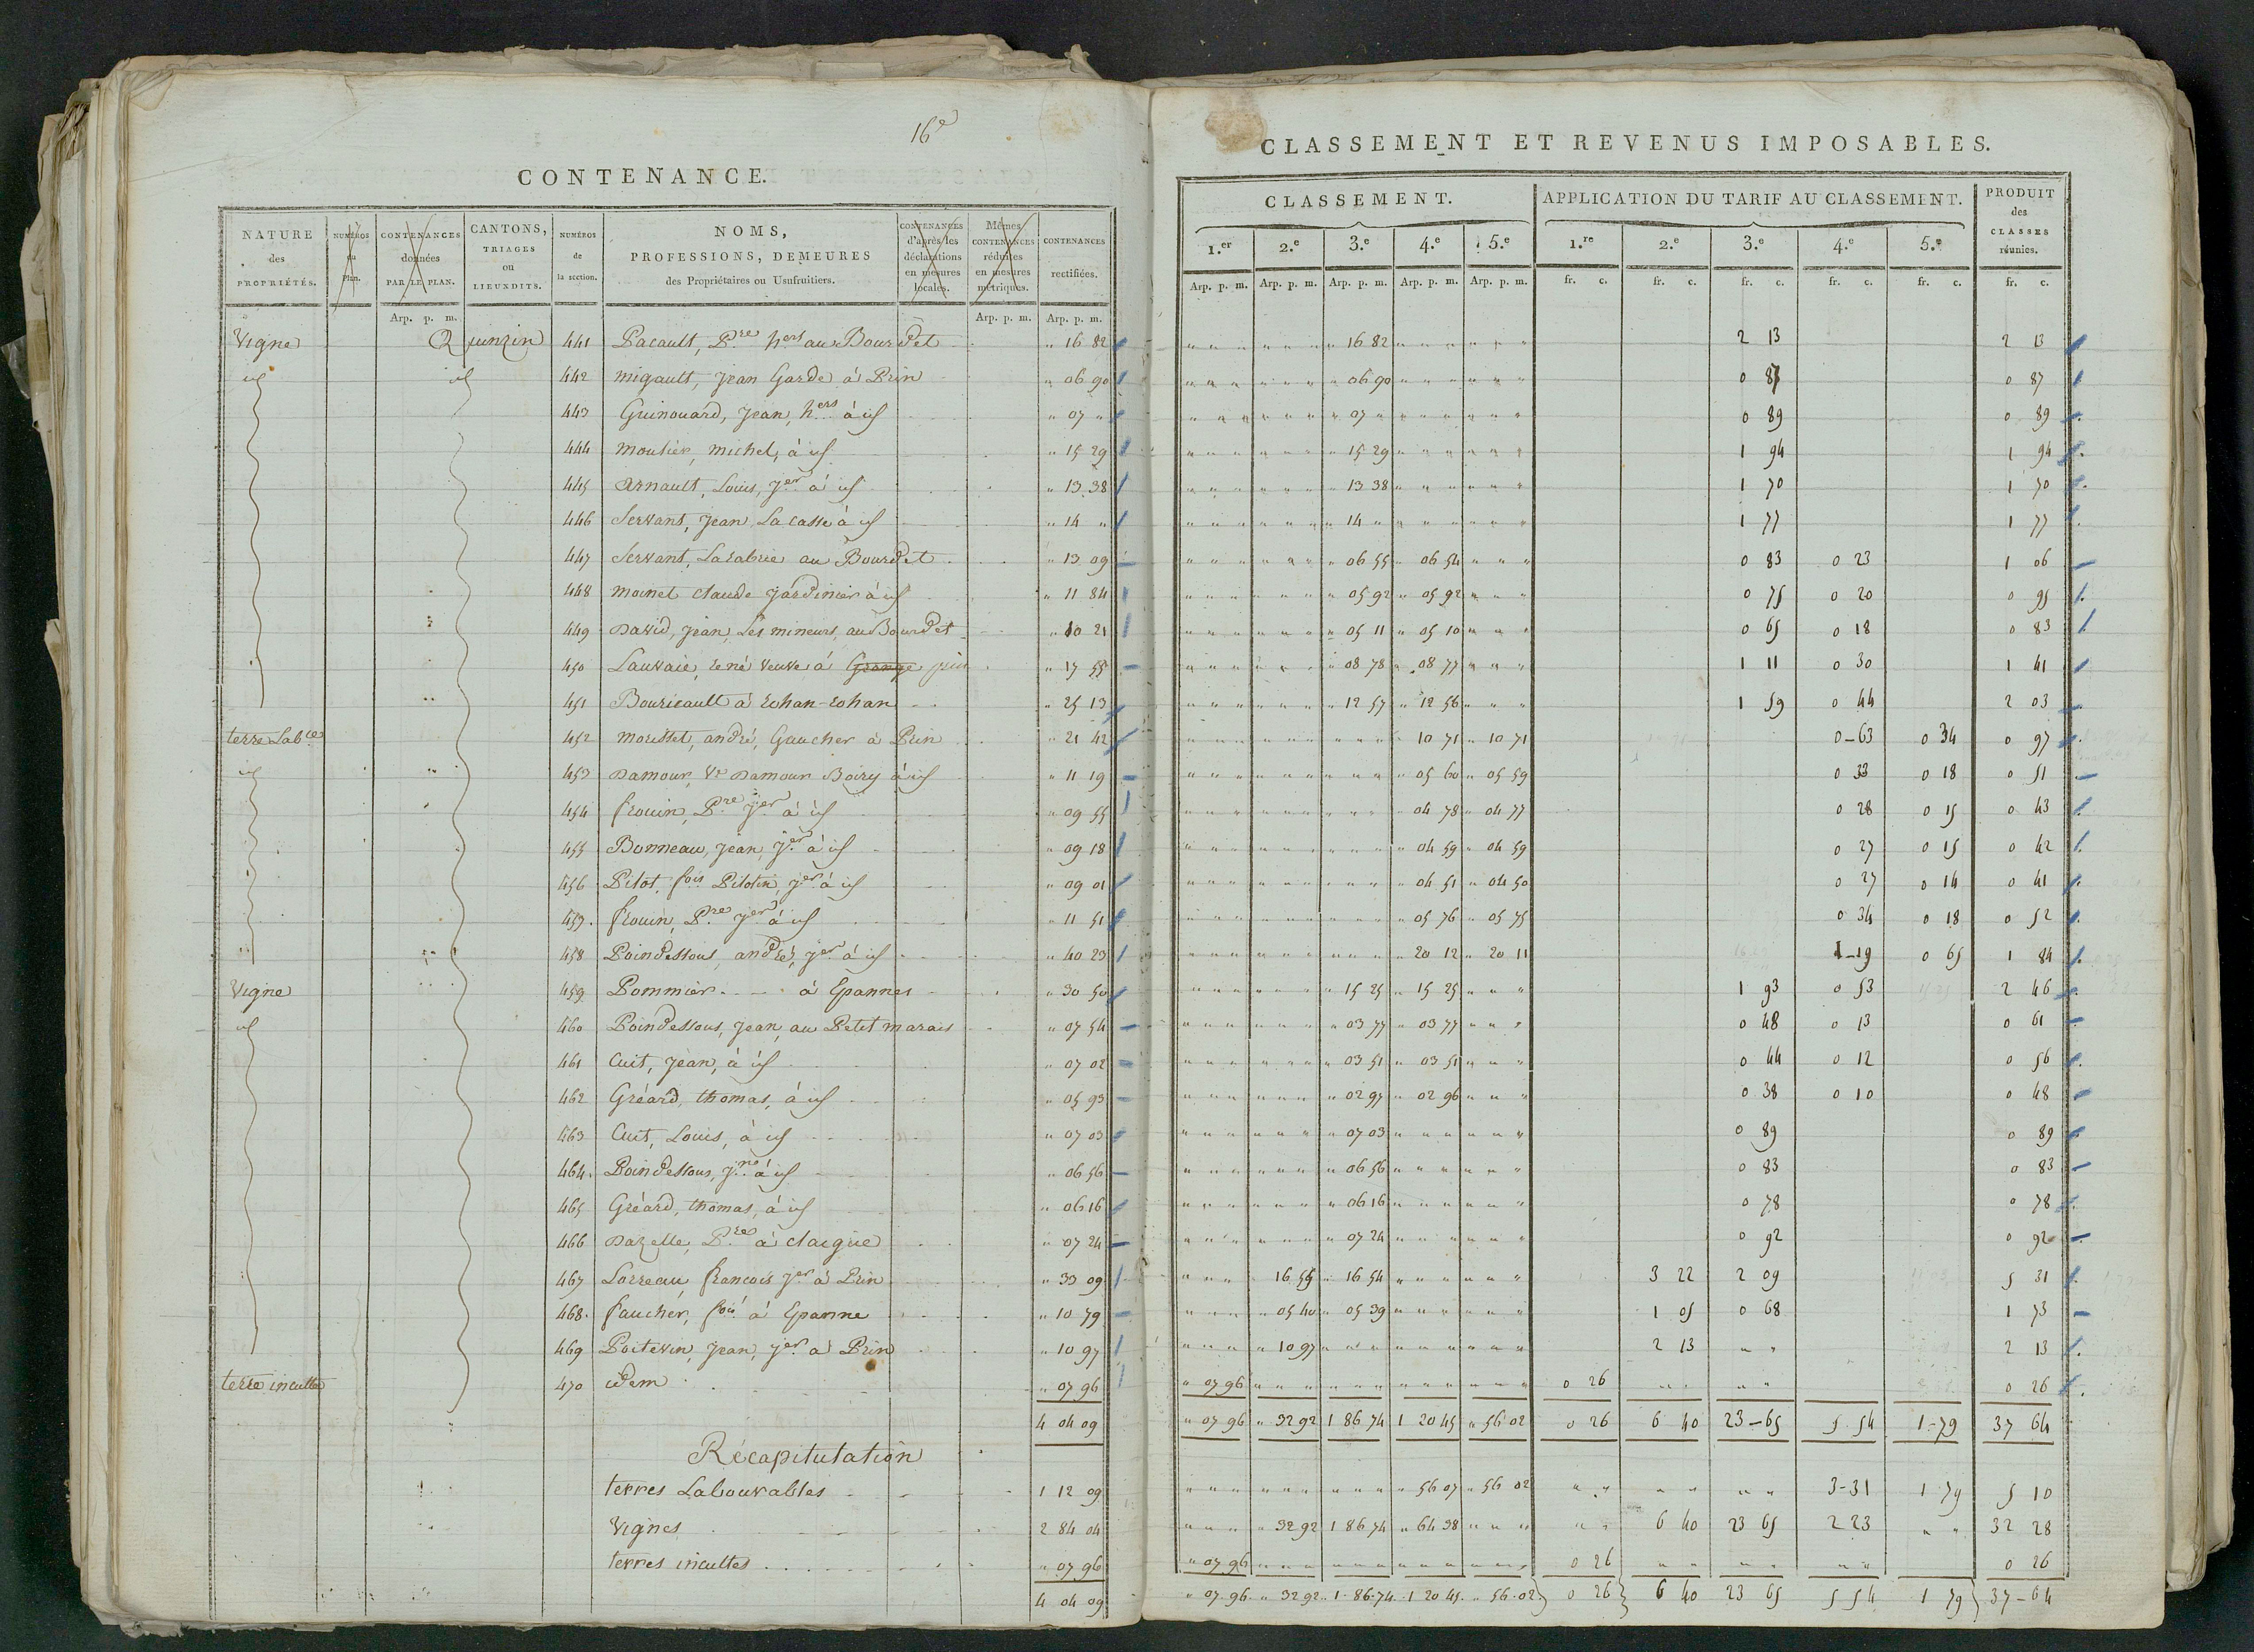 16e
CONTENANCE.
NATURE des PROPRIÉTÉS.
NUMÉROS du Plan.
CONTENANCES données PAR LE PLAN.
CANTONS, TRIAGES ou LIEUXDITS.
NUMÉROS de la section.
NOMS, PROFESSIONS, DEMEURES des Propriétaires ou Usufruitiers.
CONTENANCES d'après les déclarations en mesures locales.
Mêmes CONTENANCES réduites en mesures métriques.
CONTENANCES rectifiées.
Arp. p. m. Arp. p. m. Arp. p. m.
Vigne Quinzin 441 Pacault, Pre hers au Bourdet " 16 82
id id 442 migault, jean Garde à Prin " 06 90
443 Guinouard, jean, hers à id " 07 "
444 moulier, michel, à id " 15 29
445 arnault, Louis, jer à id " 13 38
446 Servant, jean La casse à id " 14 "
447 Servant, Larabrie au Bourdet " 13 09
448 moinet claude jardinier à id " 11 84
449 David, jean, Les mineurs, au Bourdet " 10 21
450 Lauvaie, rené veuve à Grange prin " 17 55
451 Bouricault à rohan-rohan " 25 13
terre Lable 452 morisset, andré, Gaucher à Prin " 21 42
id 453 Damour, Ve Damour Boizy à id " 11 19
454 frouin, Pre jer à id " 09 55
455 Bonneau, jean, jer à id " 09 18
456 Pilot, fois Pilotin, jer à id " 09 01
457. frouin, Pre jer à id " 11 51
458 Poindessous, andré, jer à id " 40 23
Vigne 459 Pommier à Epannes " 30 50
id 460 Poindessous, jean, au Petit marais " 07 54
461 Cuit, jean, à id " 07 02
462 Gréard, thomas, à id " 05 93
463 Cuit, Louis, à id " 07 03
464. Poindessous, jne à id " 06 56
465 Gréard, thomas, à id " 06 16
466 Dazelle, Pre à claigue " 07 24
467 Lorreau, francois jer à Prin " 33 09
468. faucher, fois à Epanne " 10 79
469 Poitevin, jean, jer à Prin " 10 97
terre inculte 470 idem " 07 96
4 04 09
Récapitulation
terres Labourables 1 12 09
Vignes 2 84 04
terres incultes " 07 96
4 04 09
CLASSEMENT ET REVENUS IMPOSABLES.
CLASSEMENT. APPLICATION DU TARIF AU CLASSEMENT. PRODUIT des CLASSES réunies.
1.er 2.e 3.e 4.e 5.e 1.re 2.e 3.e 4.e 5.e
Arp. p. m. Arp. p. m. Arp. p. m. Arp. p. m. Arp. p. m. fr. c. fr. c. fr. c. fr. c. fr. c. fr. c.
" 16 82 2 13 2 13
" 06 90 0 87 0 87
" 07 " 0 89 0 89
" 15 29 1 94 1 94
" 13 38 1 70 1 70
" 14 " 1 77 1 77
" 06 55 " 06 54 0 83 0 23 1 06
" 05 92 " 05 92 0 75 0 20 0 95
" 05 11 " 05 10 0 65 0 18 0 83
" 08 78 " 08 77 1 11 0 30 1 41
" 12 57 " 12 56 1 59 0 44 2 03
" 10 71 " 10 71 0-63 0 34 0 97
" 05 60 " 05 59 0 33 0 18 0 51
" 04 78 " 04 77 0 28 0 15 0 43
" 04 59 " 04 59 0 27 0 15 0 42
" 04 51 " 04 50 0 27 0 14 0 41
" 05 76 " 05 75 0 34 0 18 0 52
" 20 12 " 20 11 1-19 0 65 1 84
" 15 25 " 15 25 1 93 0 53 2 46
" 03 77 " 03 77 0 48 0 13 0 61
" 03 51 " 03 51 0 44 0 12 0 56
" 02 97 " 02 96 0 38 0 10 0 48
" 07 03 0 89 0 89
" 06 56 0 83 0 83
" 06 16 0 78 0 78
" 07 24 0 92 0 92
" 16 55 " 16 54 3 22 2 09 5 31
" 05 40 " 05 39 1 05 0 68 1 73
" 10 97 2 13 " " 2 13
" 07 96 0 26 " " " " 0 26
" 07 96 " 32 92 1 86 74 1 20 45 " 56 02 0 26 6 40 23-65 5 54 1-79 37 64
" 56 07 " 56 02 " " " " " " 3-31 1 79 5 10
" 32 92 1 86 74 " 64 38 " " 6 40 23 65 2 23 " " 32 28
" 07 96 0 26 " " " " " " 0 26
" 07-96. " 32 92. 1-86-74. 1 20 45. " 56-02 0 26 6 40 23 65 5 54 1 79 37-64